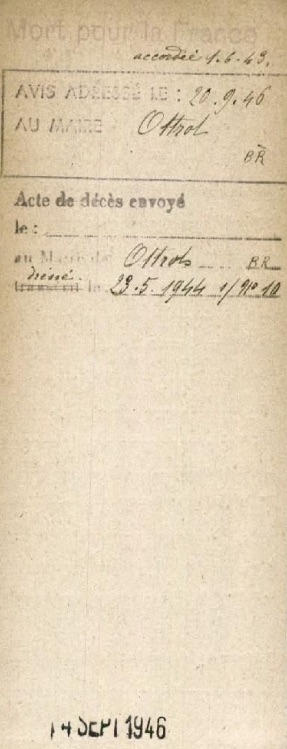 Mort pour la France
accordée 1.6.43.
AVIS ADRESSÉ LE : 20.9.46
AU MAIRE Ottrot
BR
Acte de décès envoyé
le :
au Maire de Ottrott BR
dressé
transcrit le 23.5.1944 s/ No 10
14 SEPT 1946